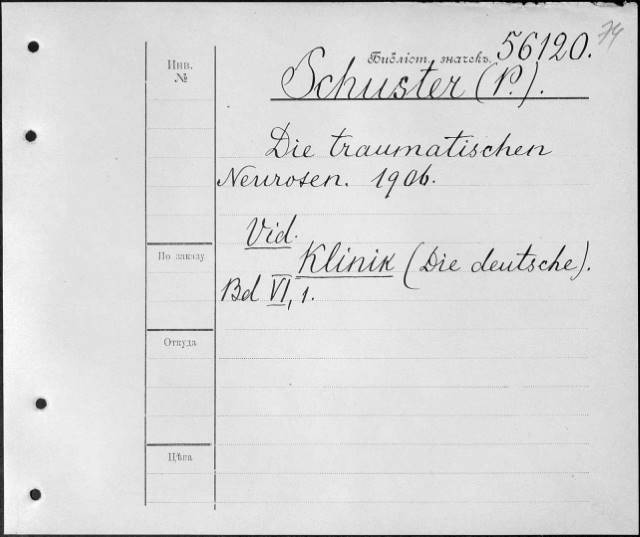 74
Библіот. значекъ. 56120.
Инв.
№
Schuster (P.).
Die traumatischen
Neurosen. 1906.
Vid.
Klinik (Die deutsche).
По заказу
Bd VI, 1.
Откуда
Цѣна